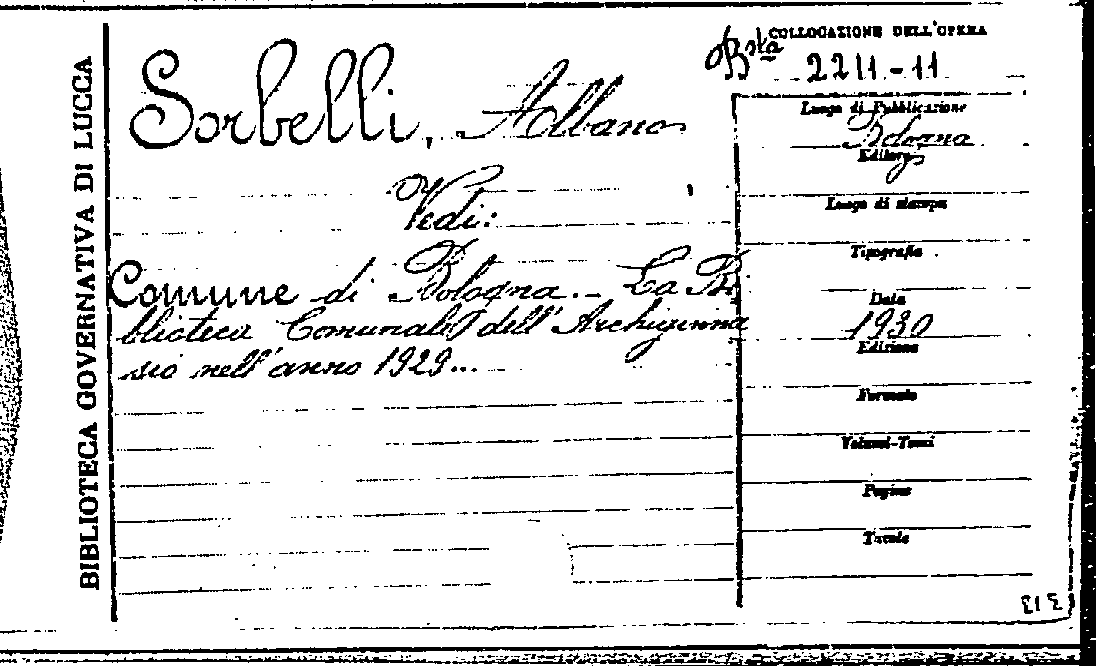 BIBLIOTECA GOVERNATIVA DI LUCCA
Sorbelli, Albano
Vedi:
Comune di Bologna. - La Bi
blioteca Comunale dell'Archiginna
sio nell'anno 1929...
COLLOCAZIONE DELL'OPERA
Bsta 2211-11
Luogo di Pubblicazione
Bologna
Editore
Luogo di stampa
Tipografia
Data
1930
Edizione
Formato
Volumi-Tomi
Pagine
Tavole